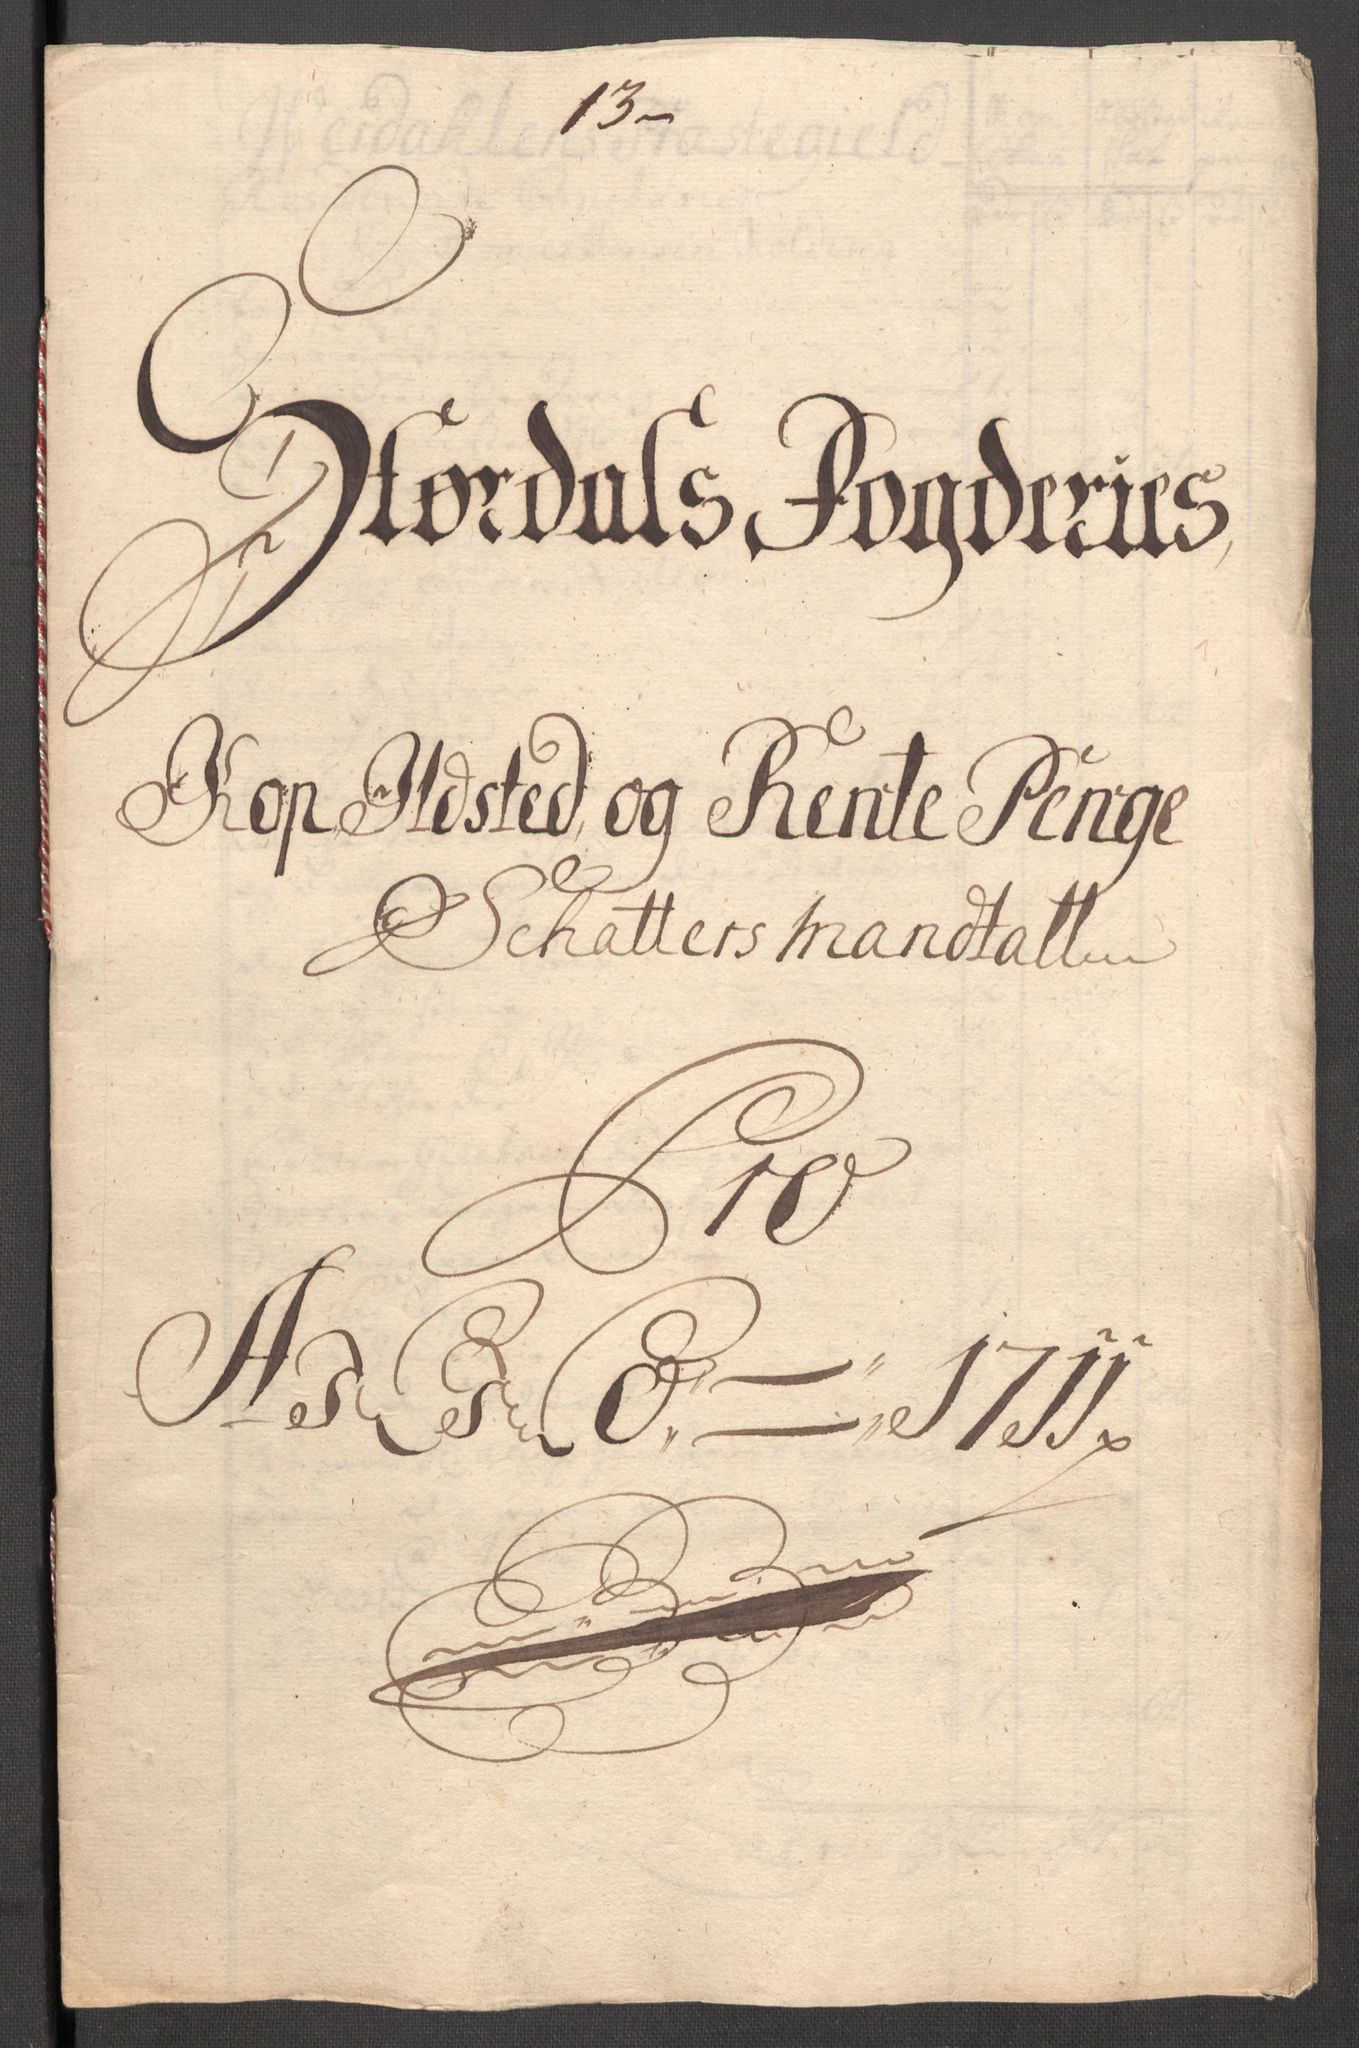 13
Størdals Fogderies,
Kop, Ildsted, og Rente Penge
Schatters Mandtall
Pro
1711